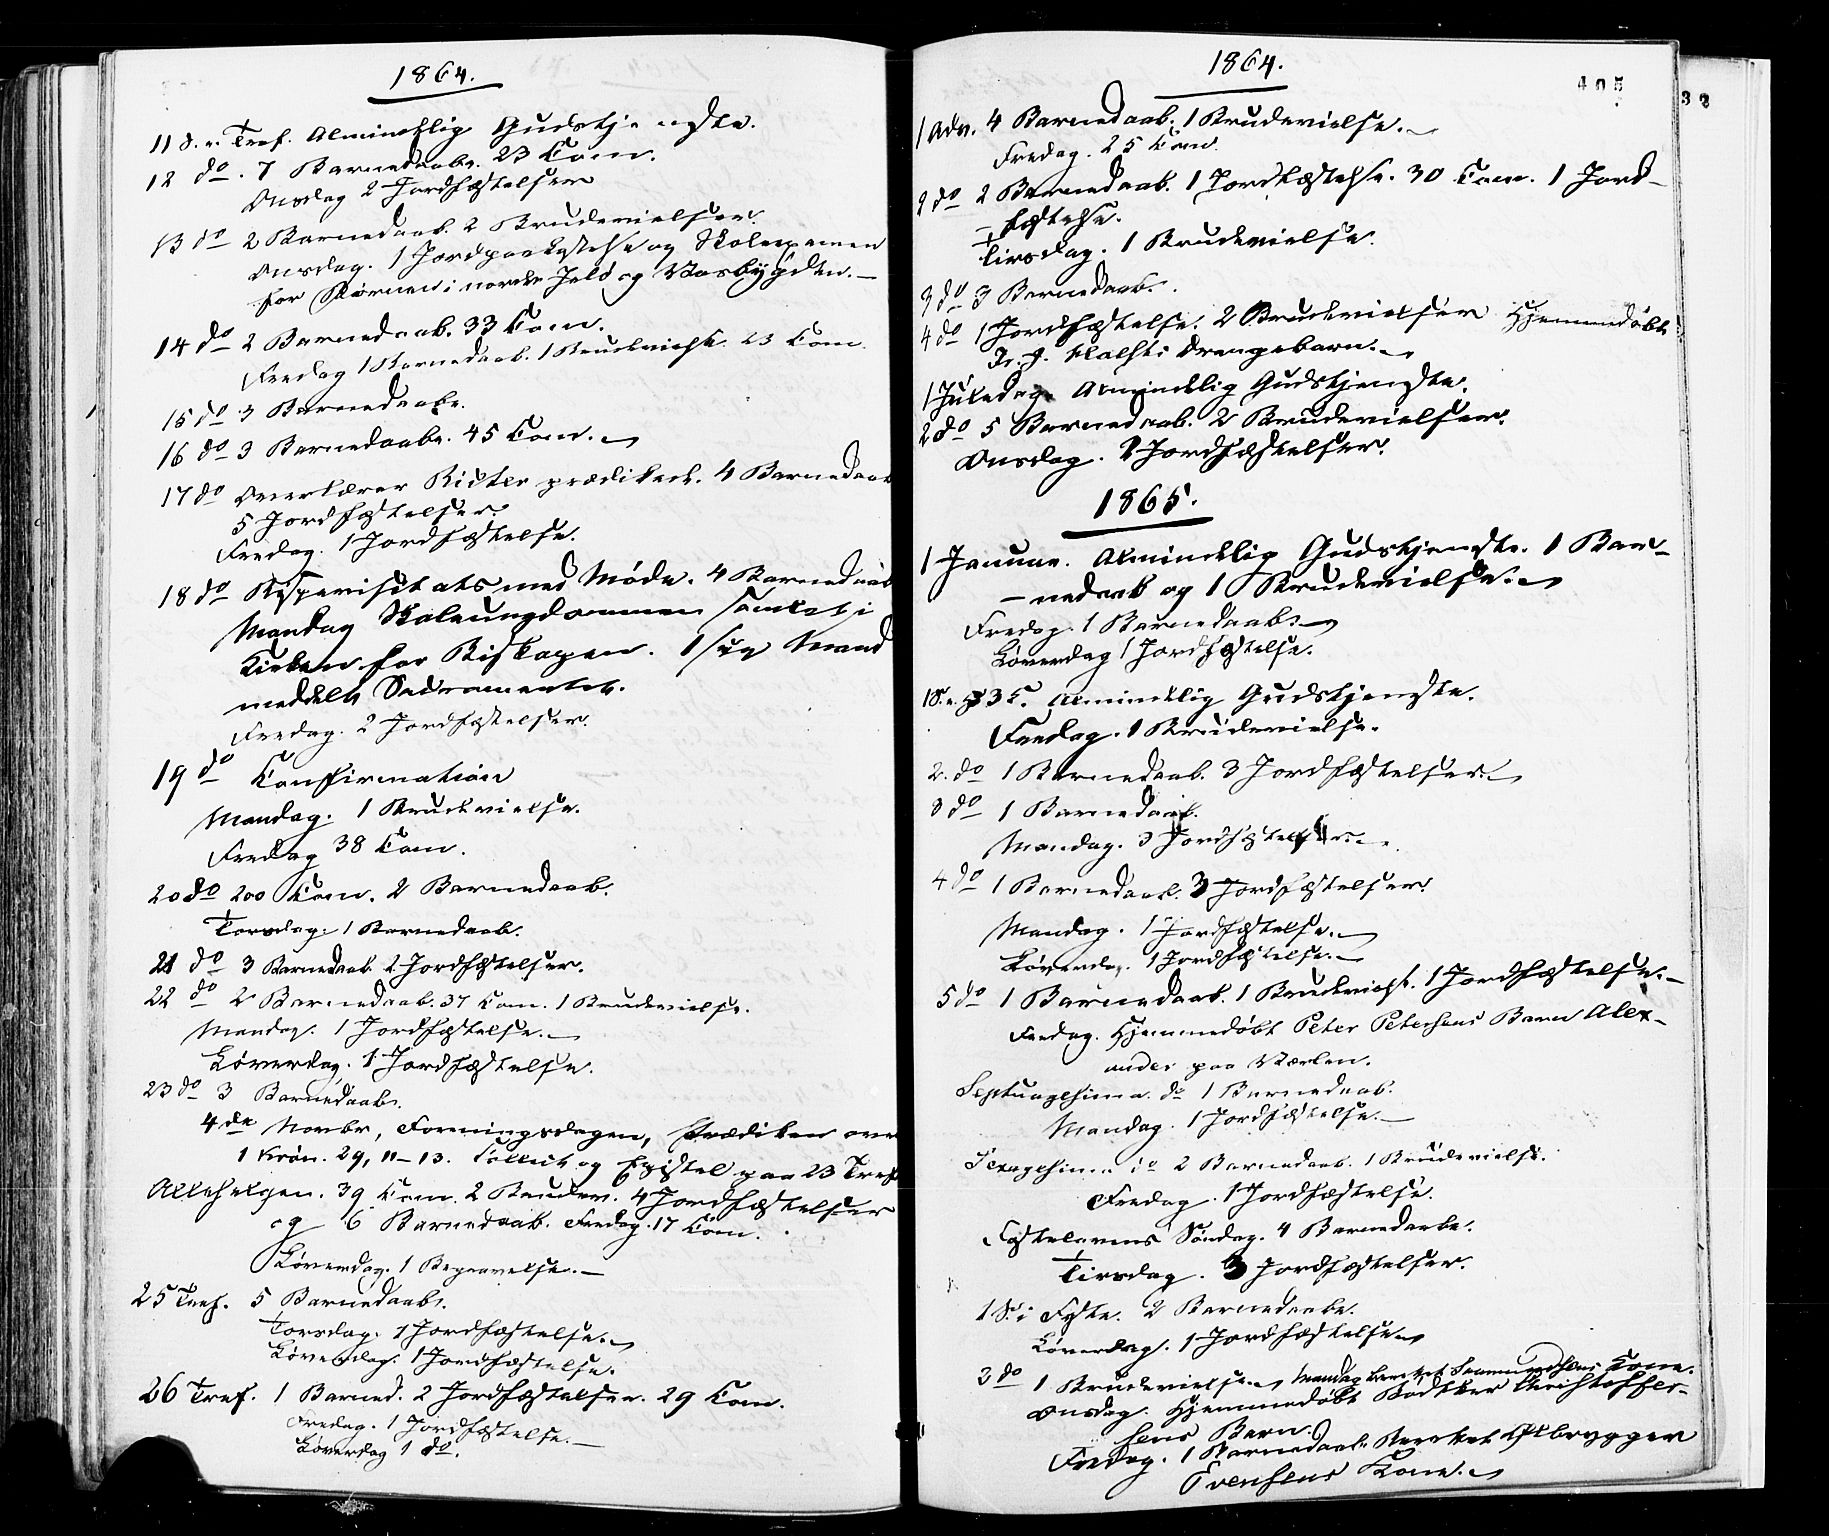 1864.
11 S. e. Tref. Almindelig Gudstjeneste.
12 do. 7 Barnedaabe. 23 Com.
Onsdag 2 Jordfæstelser
13 do 2 Barnedaab. 2 Brudevielser.
Onsdag. 1 Jordpaakastelse og Skoleexamen
for Børnene i nordre Jelø og Vosbygden. —
14 do 2 Barnedaab. 33 Com.
Fredag 1 Barnedaab. 1 Brudevielse. 23 Com.
15 do 3 Barnedaabe.
16 do 3 Barnedaabe. 45 Com. —
17 do Overlærer Richter prædikede. 4 Barnedaab
5 Jordfæstelser.
Fredag. 1 Jordfæstelse.
18 do Bispevisitats med Møde. 4 Barnedaab
Mandag Skoleungdommen samlet i
Kirken for Biskopen. 1 syg Mand
meddelt Sacramentet.
Fredag. 2 Jordfæstelser.
19 do Confirmation
Mandag. 1 Brudevielse.
Fredag 38 Com.
20 do 200 Com. 2 Barnedaab.
Torsdag. 1 Barnedaab.
21 do 3 Barnedaab 2 Jordfæstelser.
22 do 2 Barnedaab. 37 Com. 1 Brudevielse.
Mandag. 1 Jordfæstelse. —
Løverdag. 1 Jordfæstelse.
23 do 3 Barnedaab.
4de Novbr, Foreningsdagen, Prædiken over
1 Krøn. 29, 11-13. Collect og Epistel paa 23 Tref
Allehelgen. 39 Com. 2 Brudev. 4 Jordfæstelser
og 6 Barnedaab. Fredag. 17 Com.
Løverdag. 1 Begravelse. —
25 Tref. 5 Barnedaab.
Torsdag. 1 Jordfæstelse. —
Løverdag. 1 Jordfæstelse.
26 Tref. 1 Barned. 2 Jordfæstelser. 29 Com.
Fredag. 1 Jordfæstelse. —
Løverdag 1 do.
1864.
405
32
1 Adv. 4 Barnedaab. 1 Brudevielse. —
Fredag. 25 Com.
2 do 2 Barnedaab. 1 Jordfæstelse. 30 Com. 1 Jord-
-fæstelse.
Tirsdag. 1 Brudevielse.
3 do 3 Barnedaab.
4 do 1 Jordfæstelse. 2 Brudevielser Hjemmedøbt
Drengebarn. —
1 Juledag. Almindelig Gudstjeneste.
2 do 5 Barnedaab. 2 Brudevielser.
Onsdag. 2 Jordfæstelser.
1865.
1 Januar. Almindelig Gudstjeneste. 1 Bar-
-nedaab og 1 Brudevielse. —
Fredag. 1 Barnedaab. —
Løverdag 1 Jordfæstelse.
1 S. e. H 3 K. Almindelig Gudstjeneste.
Fredag. 1 Brudevielse.
2. do 1 Barnedaab. 3 Jordfæstelser. —
3 do 1 Barnedaab.
Mandag. 3 Jordfæstelser. —
4 do 1 Barnedaab. 3 Jordfæstelser.
Mandag. 1 Jordfæstelse. —
Løverdag. 1 Jordfæstelse. —
5 do 1 Barnedaab. 1 Brudevielse. 1 Jordfæstelse. —
Fredag. Hjemmedøbt Peter Petersens Barn Alex-
ander paa Værlen.
Septuagesima do 1 Barnedaab.
Mandag. 1 Jordfæstelse. —
Sexagesima do 2 Barnedaab. 1 Brudevielse.
Fredag. 1 Jordfæstelse.
Fastelavens Søndag. 4 Barnedaabe.
Tirsdag. 3 Jordfæstelser.
1 S. i Faste. 2 Barnedaabe.
Løverdag. 1 Jordfæstelse. —
2 do 1 Brudevielse. — Mandag berettet Kone.
Onsdag. Hjemmedøbt Bødtker Christoffer-
sens Barn.
Fredag. 1 Barnedaab. Berettet Ølbrygger
Evensens Kone. —